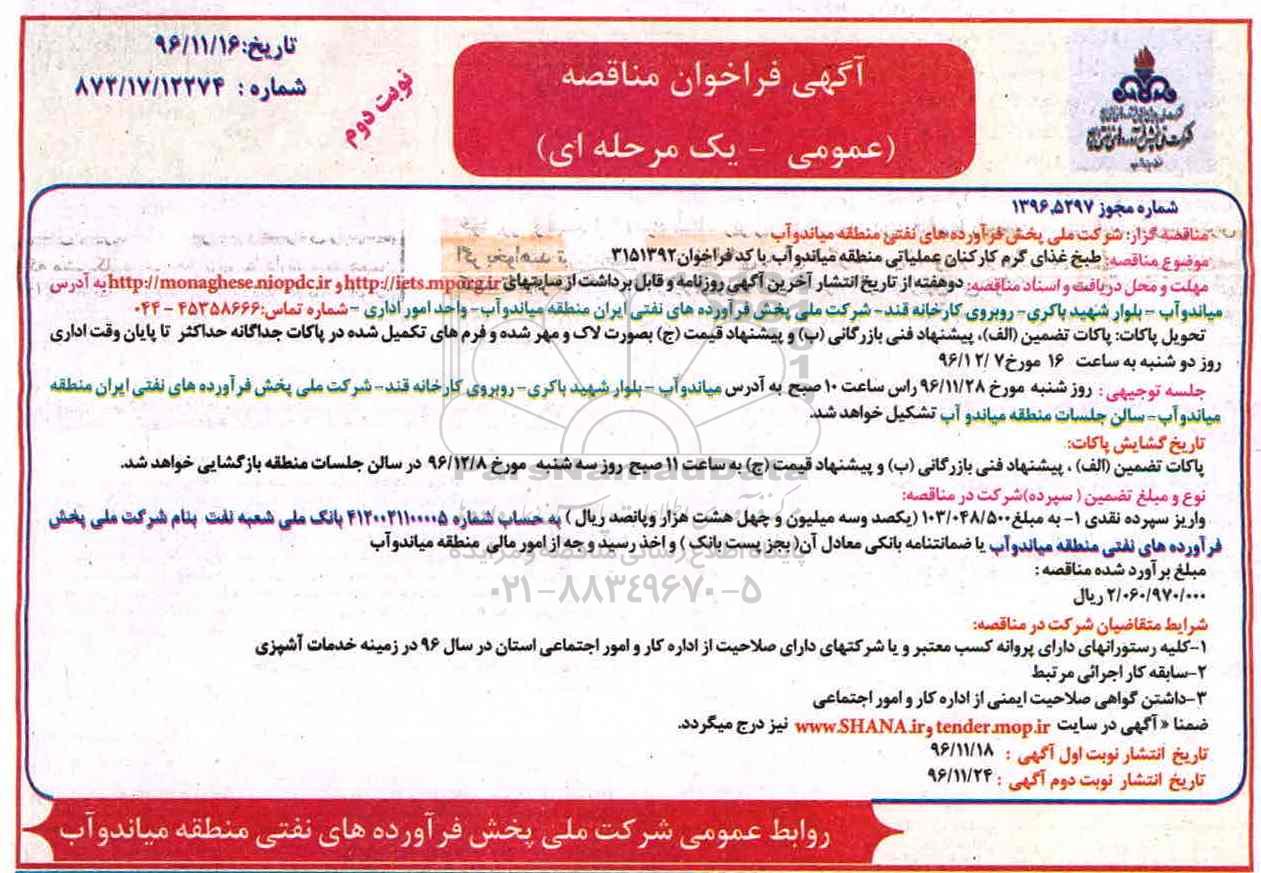 تاریخ:۹۶/۱۱/۱۶
شماره : ۸۷۳/۱۷/۱۲۲۷۴
نوبت دوم
آگهی فراخوان مناقصه
(عمومی - یک مرحله ای)
شماره مجوز ۱۳۹۶,۵۲۹۷
مناقصه گزار: شرکت ملی پخش فرآورده های نفتی منطقه میاندوآب
موضوع مناقصه: طبخ غذای گرم کارکنان عملیاتی منطقه میاندوآب با کد فراخوان۳۱۵۱۳۹۲
مهلت و محل دریافت و اسناد مناقصه: دوهفته از تاریخ انتشار آخرین آگهی روزنامه و قابل برداشت از سایتهای http://iets.mporg.ir و http://monaghese.niopdc.ir به آدرس
میاندوآب - بلوار شهید باکری- روبروی کارخانه قند- شرکت ملی پخش فرآورده های نفتی ایران منطقه میاندوآب- واحد امور اداری - شماره تماس:۴۵۳۵۸۶۶۶ - ۰۴۴
تحویل پاکات: پاکات تضمین (الف)، پیشنهاد فنی بازرگانی (ب) و پیشنهاد قیمت (ج) بصورت لاک و مهر شده و فرم های تکمیل شده در پاکات جداگانه حداکثر تا پایان وقت اداری
روز دو شنبه به ساعت ۱۶ مورخ۷ /۹۶/۱۲
جلسه توجیهی : روز شنبه مورخ ۹۶/۱۱/۲۸ راس ساعت ۱۰ صبح به آدرس میاندوآب - بلوار شهید باکری- روبروی کارخانه قند- شرکت ملی پخش فرآورده های نفتی ایران منطقه
میاندوآب- سالن جلسات منطقه میاندو آب تشکیل خواهد شد.
تاریخ گشایش پاکات:
پاکات تضمین (الف) ، پیشنهاد فنی بازرگانی (ب) و پیشنهاد قیمت (ج) به ساعت ۱۱ صبح روز سه شنبه مورخ ۹۶/۱۲/۸ در سالن جلسات منطقه بازگشایی خواهد شد.
نوع و مبلغ تضمین ( سپرده)شرکت در مناقصه:
واریز سپرده نقدی ۱- به مبلغ۱۰۳/۰۴۸/۵۰۰ (یکصد وسه میلیون و چهل هشت هزار وپانصد ریال ) به حساب شماره ۴۱۲۰۰۲۱۱۰۰۰۰۵ بانک ملی شعبه نفت بنام شرکت ملی پخش
فرآورده های نفتی منطقه میاندوآب یا ضمانتنامه بانکی معادل آن( بجز پست بانک ) و اخذ رسید وجه از امور مالی منطقه میاندوآب
مبلغ برآورد شده مناقصه :
۲/۰۶۰/۹۷۰/۰۰۰ ریال
شرایط متقاضیان شرکت در مناقصه:
۱-کلیه رستورانهای دارای پروانه کسب معتبر و یا شرکتهای دارای صلاحیت از اداره کار و امور اجتماعی استان در سال ۹۶ در زمینه خدمات آشپزی
۲-سابقه کار اجرائی مرتبط
۳-داشتن گواهی صلاحیت ایمنی از اداره کار و امور اجتماعی
ضمنا « آگهی در سایت tender.mop.ir و www.SHANA.ir نیز درج میگردد.
تاریخ انتشار نوبت اول آگهی : ۹۶/۱۱/۱۸
تاریخ انتشار نوبت دوم آگهی : ۹۶/۱۱/۲۴
روابط عمومی شرکت ملی پخش فرآورده های نفتی منطقه میاندوآب
ParsNamadData
پایگاه اطلاع رسانی مناقصه و مزایده
۰۲۱-۸۸۳۴۹۶۷۰-۵